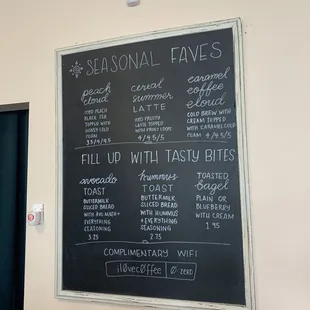 SEASONAL FAVES
peach
cloud
ICED PEACH
BLACK TEA
TOPPED WITH
HONEY COLD
FOAM
3.5/4/4.5
cereal
summer
LATTE
ICED FRUITY
LATTE TOPPED
WITH FROOT LOOPS
4/4.5/5
caramel
coffee
cloud
COLD BREW WITH
CREAM TOPPED
WITH CARAMEL COLD
FOAM 4/4.5/5
FILL UP WITH TASTY BITES
avocado
TOAST
BUTTERMILK
SLICED BREAD
WITH AVO MASH +
EVERYTHING
SEASONING
3.25
hummus
TOAST
BUTTERMILK
SLICED BREAD
WITH HUMMUS
+ EVERYTHING
SEASONING
2.75
TOASTED
bagel
PLAIN OR
BLUEBERRY
WITH CREAM
1.95
COMPLIMENTARY WIFI
iløvecøffee
Ø = ZERO